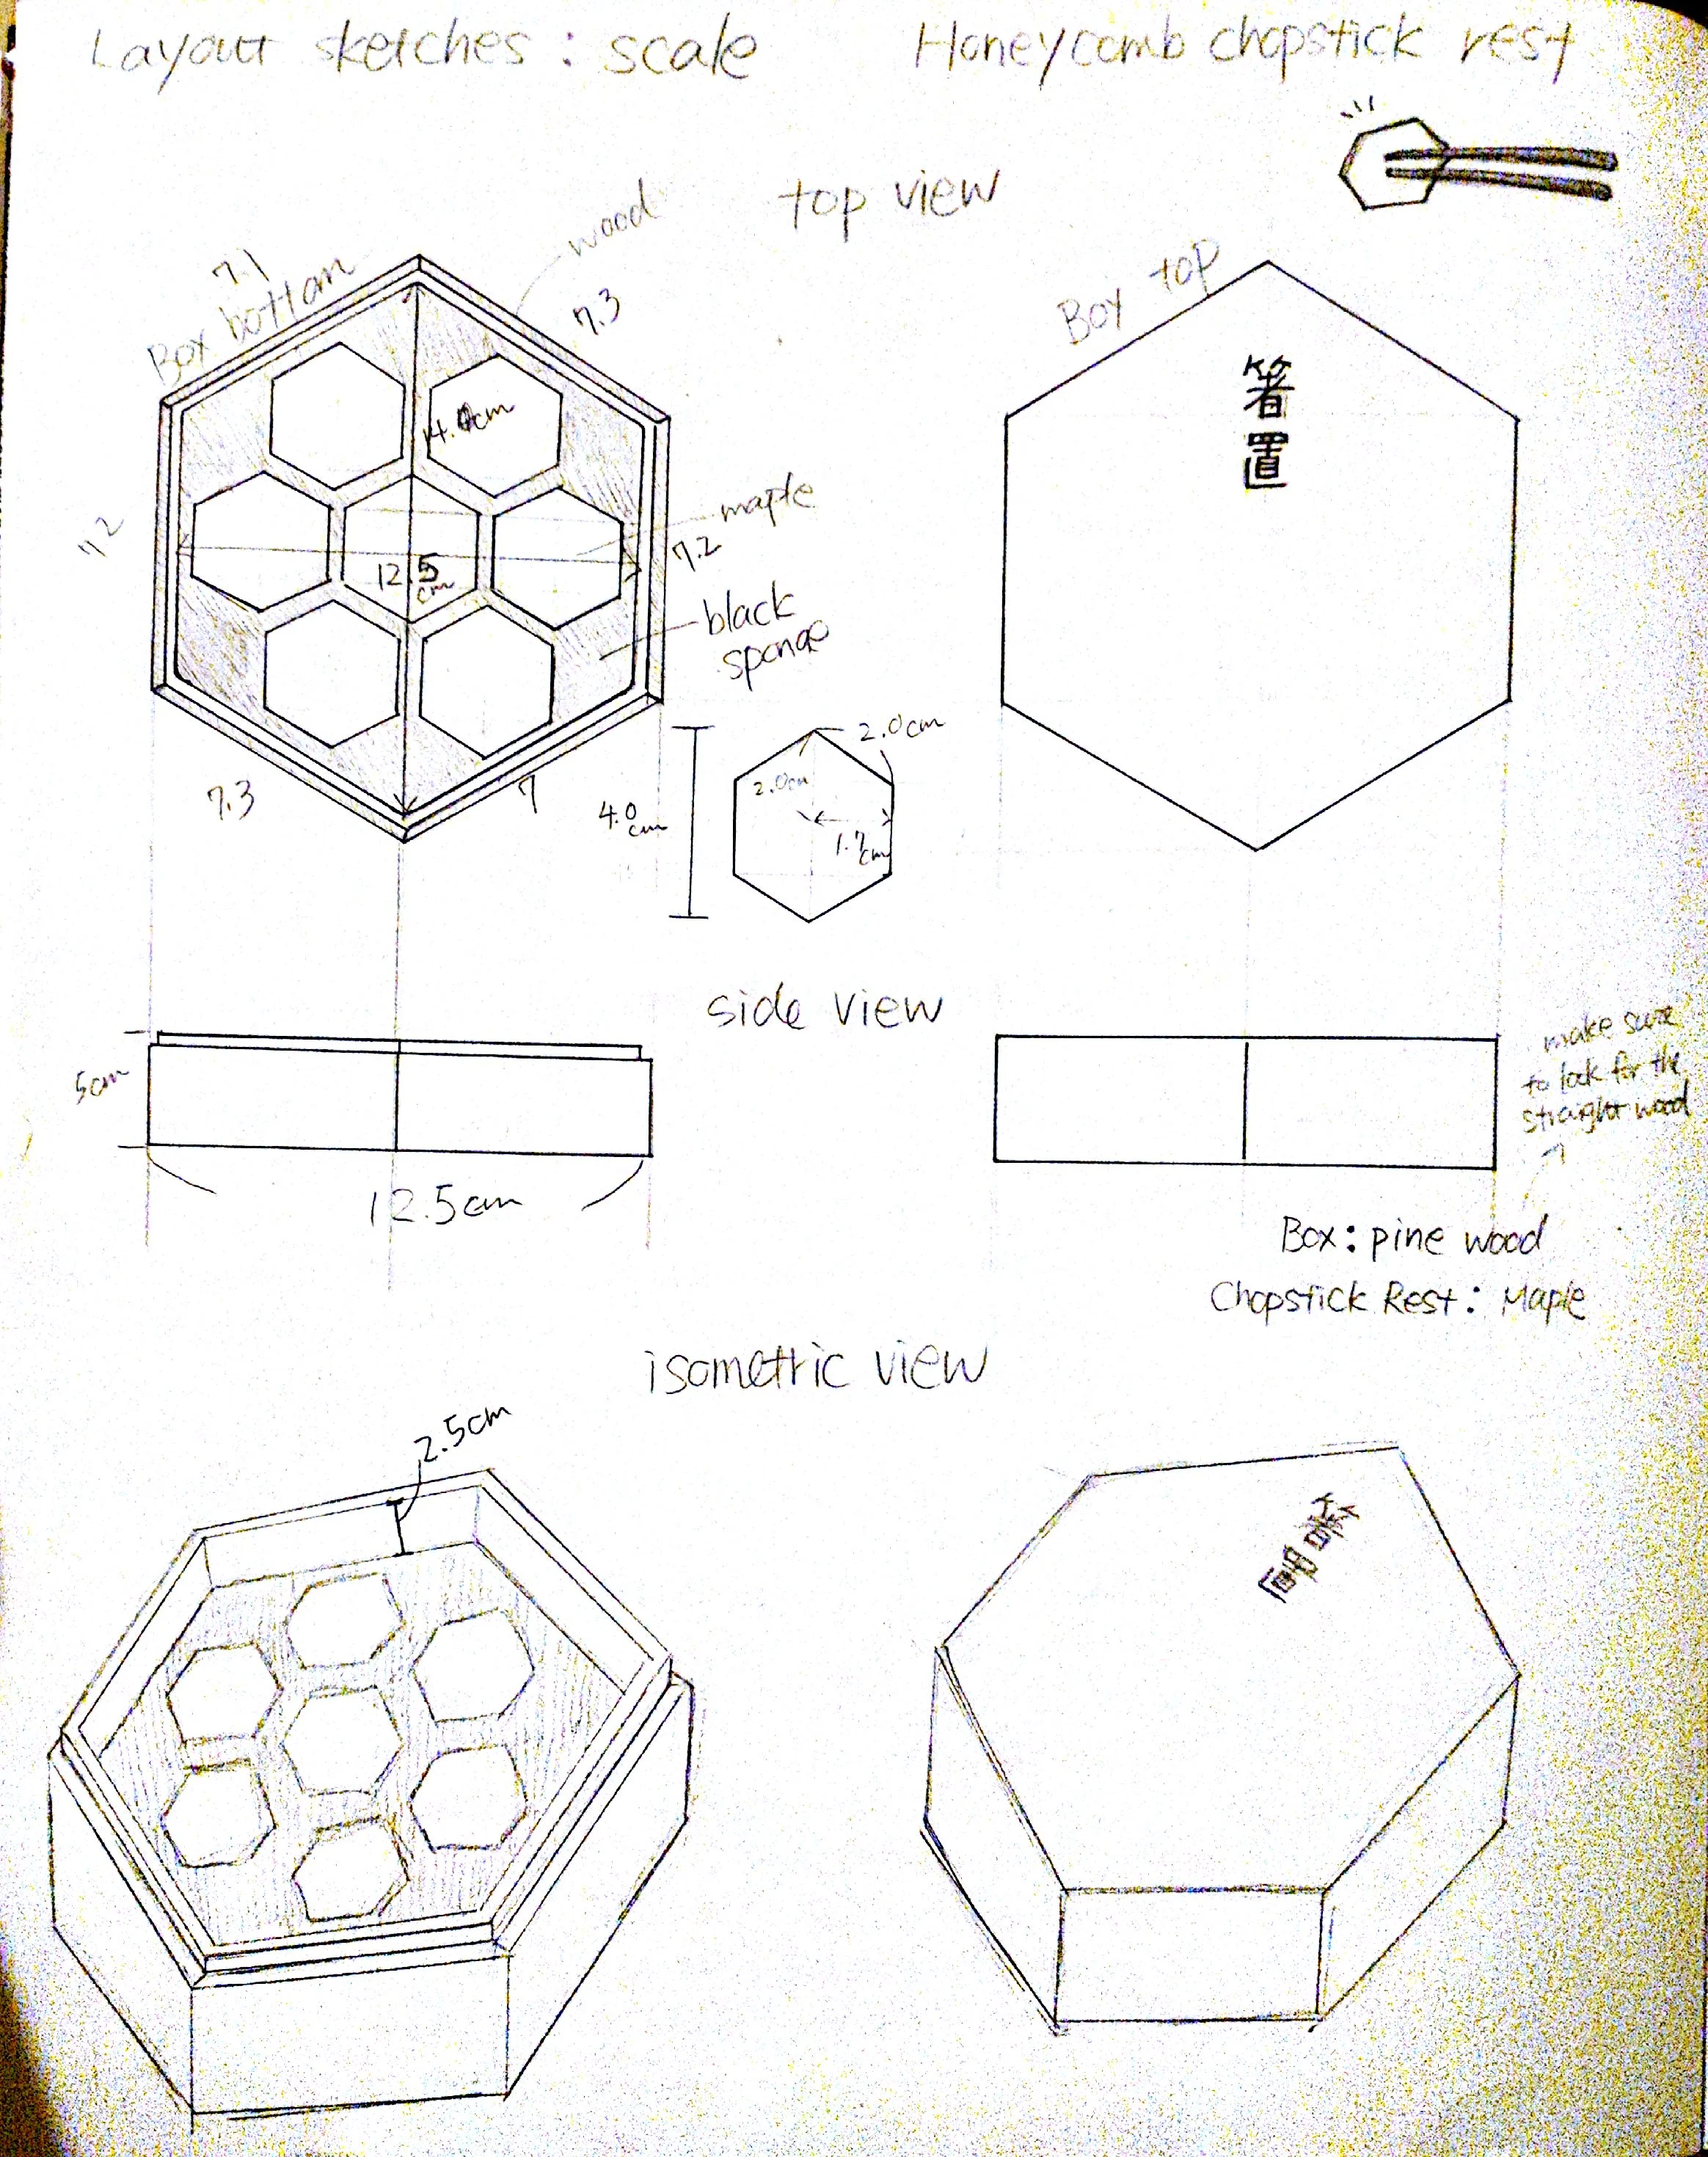 Layout sketches : scale
Honeycomb chopstick rest
top view
wood
7.1
Box bottom
7.3
Box top
箸置
4.0cm
maple
7.2
7.2
12.5
cm
black
sponge
2.0cm
2.0cm
4.0
cm
1.7
cm
7.3
7
side view
make sure
to look for the
straight wood
5cm
12.5cm
Box: pine wood
Chopstick Rest: Maple
isometric view
2.5cm
箸置